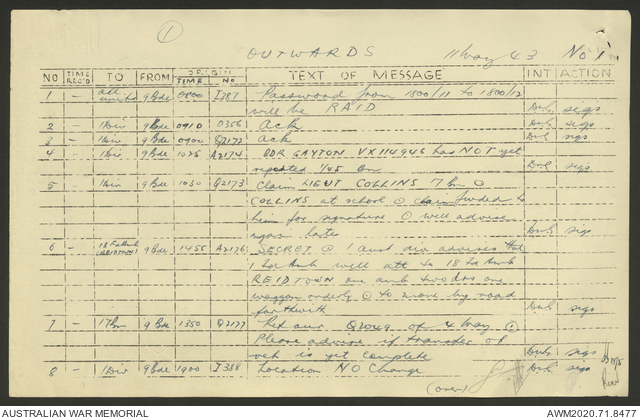 1
OUTWARDS 11 May 43 No 1
NO TIME REC'D TO FROM TIME NO TEXT OF MESSAGE INT ACTION
1 - all 9 Bde 0800 I387 Password from 1800/11 to 1800/12
will be RAID sigs
2 - 1 Div 9 Bde 0910 O356 Ack sigs
3 - 1 Div 9 Bde 0900 Q2172 Ack sigs
4 - 1 Div 9 Bde 1025 A2174 BDR GAYTON VX114946 has NOT yet
reported 1/45 Bn sigs
5 - 1 Div 9 Bde 1030 Q2173 Claim LIEUT COLLINS 17 Bn
COLLINS at school fwded to
him for signature will advise
again later sigs
6 - 18 Fd Amb (REIDTOWN) 9 Bde 1455 A2176 SECRET 1 Aust div advises that
will att to 18 Fd Amb
REIDTOWN one amb two ors one
waggon orderly to move by road
forthwith sigs
7 - 17 Bn 9 Bde 1350 Q2177 Ref our Q2049 of 4 May
Please advise if transfer of
veh is yet complete sigs
8 - 1 Div 9 Bde 1900 I388 Location NO Change sigs
(over)
AUSTRALIAN WAR MEMORIAL AWM2020.71.8477